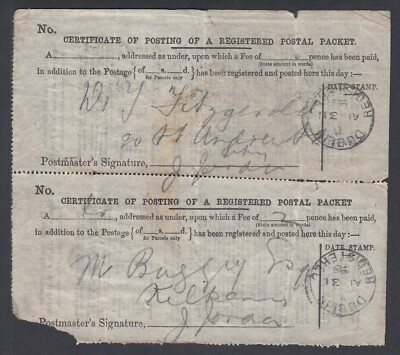 No.
CERTIFICATE OF POSTING OF A REGISTERED POSTAL PACKET.
A , addressed as under, upon which a Fee of pence has been paid,
(State amount in words)
in addition to the Postage { of s. d. } has been registered and posted here this day :—
for Parcels only
DATE STAMP.
Fitzgerald
REGISTERED
DUBLIN
Postmaster's Signature,
J Jordan
No.
CERTIFICATE OF POSTING OF A REGISTERED POSTAL PACKET
A , addressed as under, upon which a Fee of 2 pence has been paid,
(State amount in words)
in addition to the Postage { of s. d. } has been registered and posted here this day :—
for Parcels only
DATE STAMP.
M Buggy Esq
REGISTERED
DUBLIN
Postmaster's Signature,
J Jordan